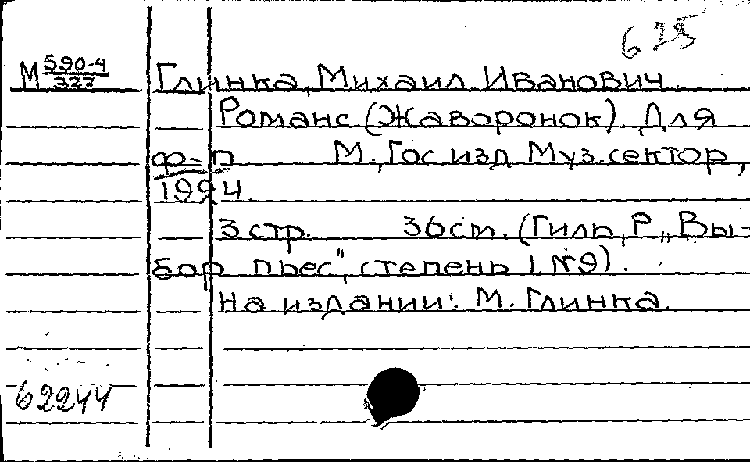 625
М 590-4/322 Глинка, Михаил Иванович.
Романс (Жаворонок). Для
ф-п М., Гос. изд. Муз. сектор,
1924.
3 стр. 36 cm. (Гиль, Р. „Вы-
бор пьес", степень I №9).
На издании: М. Глинка.
62244